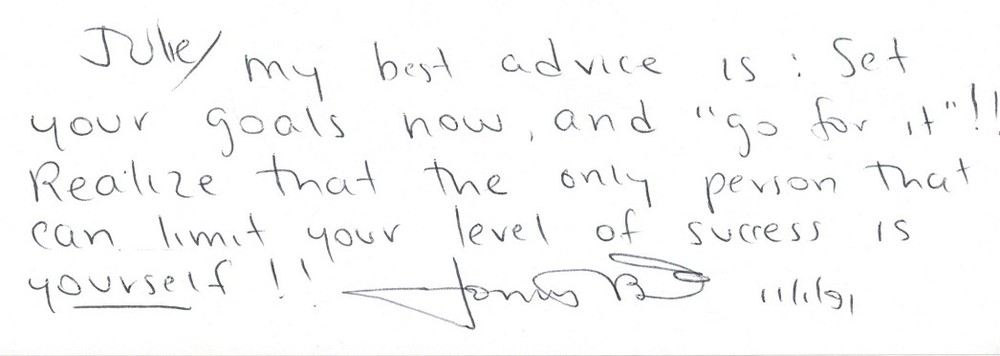 Julie/ my best advice is : Set
your goals now, and "go for it"!!
Realize that the only person that
can limit your level of success is
yourself !! 11/1/91